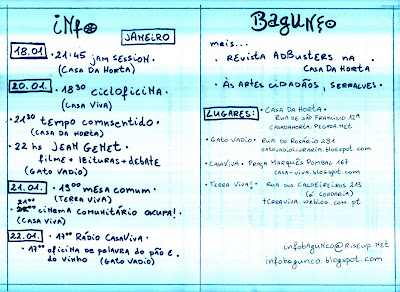 info
JANEIRO
18.01. · 21:45 JAM SESSION ·
(CASA DA HORTA)
20.01. · 18³⁰ CICLOFICINA ·
(CASA VIVA)
· 21³⁰ TEMPO COM(N)SENTIDO ·
(CASA DA HORTA)
· 22 HS JEAN GENET ·
FILME + LEITURAS + DEBATE
(GATO VADIO)
21.01. · 19⁰⁰ MESA COMUM ·
(TERRA VIVA)
· 21⁰⁰ CINEMA COMUNITÁRIO OKUPA! ·
(CASA VIVA)
22.01. · 17⁰⁰ RÁDIO CASAVIVA ·
· 17⁰⁰ OFICINA DE PALAVRA DO PÃO E
DO VINHO · (GATO VADIO)
BAGUNÇO
MAIS...
· REVISTA ADBUSTERS NA
CASA DA HORTA ·
· ÀS ARTES CIDADÃOS, SERRALVES ·
LUGARES: · CASA DA HORTA ·
RUA DE SÃO FRANCISCO 12A
CASADAHORTA.PEGADA.NET
· GATO VADIO · RUA DO ROSÁRIO 281
GATOVADIOLIVRARIA.BLOGSPOT.COM
· CASAVIVA · PRAÇA MARQUÊS POMBAL 167
CASA-VIVA.BLOGSPOT.COM
· TERRA VIVA! · RUA DOS CALDEIREIROS 213
(Cª CORDOARIA)
TERRAVIVA.WEBLOG.COM.PT
INFOBAGUNCO@RISEUP.NET
INFOBAGUNCO.BLOGSPOT.COM